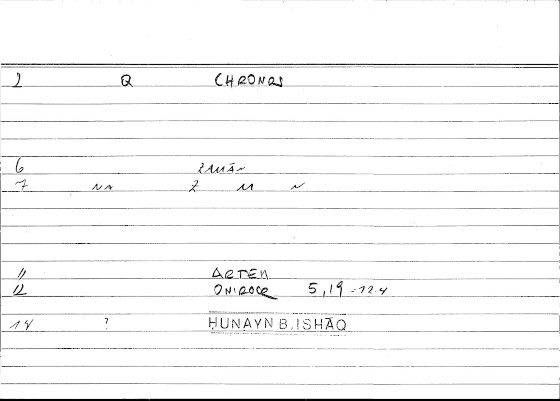 2 Q CHRONOS
6 zmān
7 NA Z M N
11 ARTEM
12 ONIROCR 5,19 - 12.4
14 ? ḤUNAYN B. ISḤĀQ